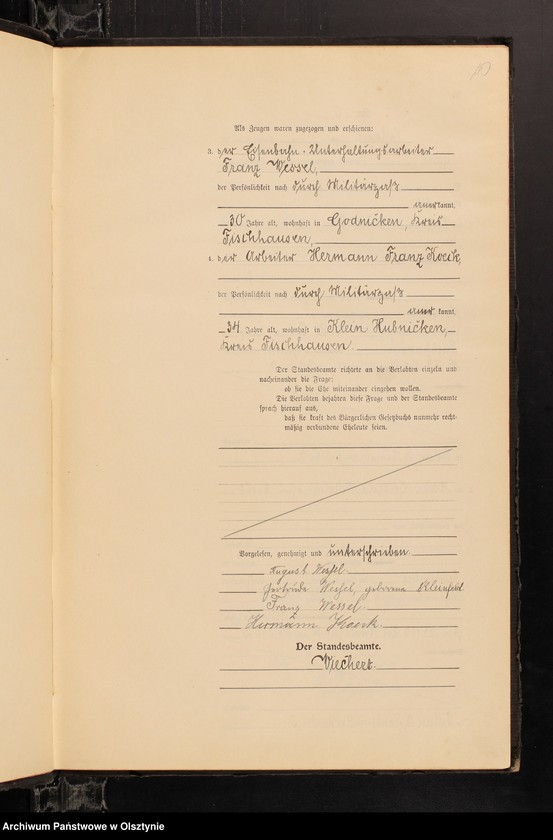 Als Zeugen waren zugezogen und erschienen:
3. der Eisenbahn-Unterhaltungsarbeiter
Franz Wessel,
der Persönlichkeit nach durch Militärpaß
anerkannt,
30 Jahre alt, wohnhaft in Godnicken, Kreis
Fischhausen,
4. der Arbeiter Hermann Franz Koeck,
der Persönlichkeit nach durch Militärpaß
anerkannt,
34 Jahre alt, wohnhaft in Klein Hubnicken,
Kreis Fischhausen.
Der Standesbeamte richtete an die Verlobten einzeln und
nacheinander die Frage:
ob sie die Ehe miteinander eingehen wollen.
Die Verlobten bejahten diese Frage und der Standesbeamte
sprach hierauf aus,
daß sie kraft des Bürgerlichen Gesetzbuchs nunmehr recht-
mäßig verbundene Eheleute seien.
Vorgelesen, genehmigt und unterschrieben.
August Wessel.
Gertrude Wessel, geborene Kleinfeld
Franz Wessel.
Hermann Koeck
Der Standesbeamte.
Wiechert.
Archiwum Państwowe w Olsztynie